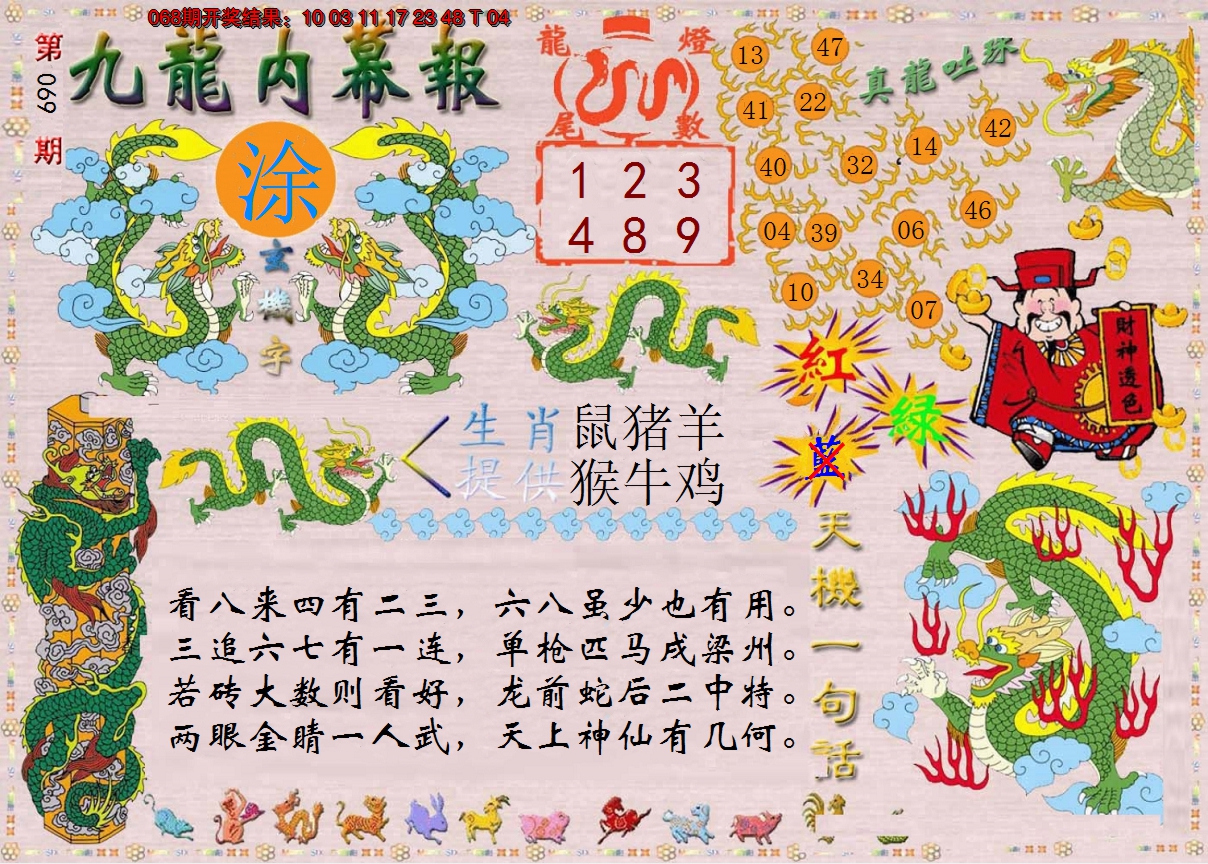 068期开奖结果：10 03 11 17 23 48 T 04
第
069
期
九龍内幕報
涂
玄
機
字
龍 燈
尾 數
1 2 3
4 8 9
真龍吐珠
13
47
41
22
40
32
14
42
04
39
06
46
10
34
07
財神透色
紅
綠
藍
生肖 鼠猪羊
提供 猴牛鸡
天機一句話
看八来四有二三，六八虽少也有用。
三追六七有一连，单枪匹马戍梁州。
若砖大数则看好，龙前蛇后二中特。
两眼金睛一人武，天上神仙有几何。